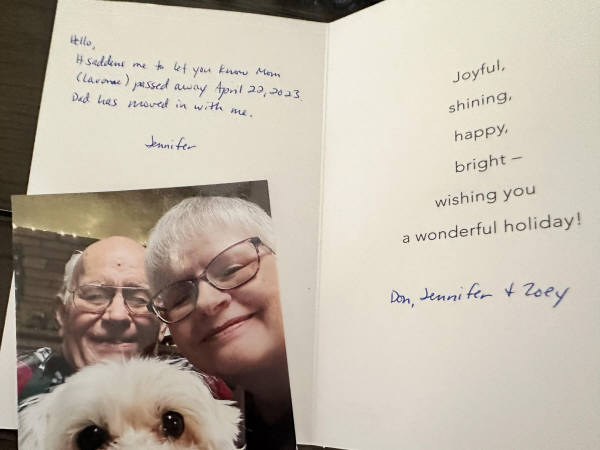 Hello,
It saddens me to let you know Mom
(Lavonne) passed away April 22, 2023.
Dad has moved in with me.
Jennifer
Joyful,
shining,
happy,
bright –
wishing you
a wonderful holiday!
Don, Jennifer + Zoey